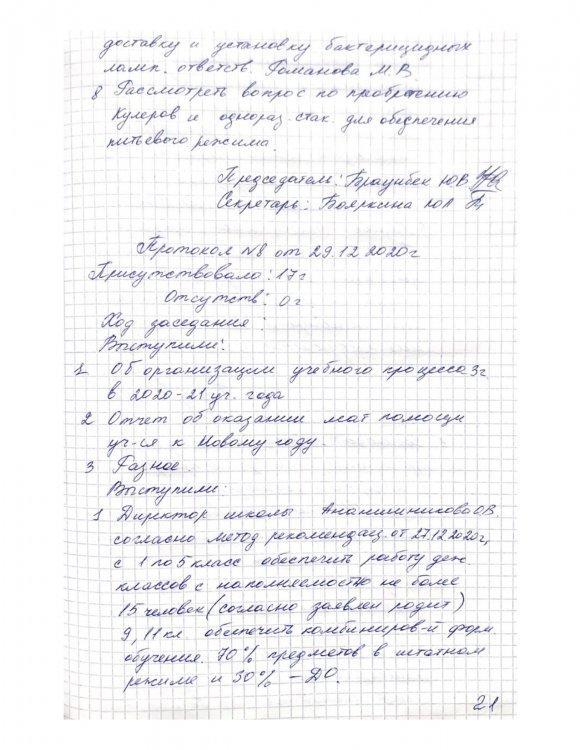 доставку и установку бактерицидных
ламп. ответств. Романова М.В.
8 Рассмотреть вопрос по приобретению
кулеров и однораз. стак. для обеспечения
питьевого режима.
Председатель: Браунбек Ю В
Секретарь: Бояркина Ю Л
Протокол №8 от 29.12.2020г
Присутствовало: 17 г
Отсутств: 0 г
Ход заседания :
Выступили:
1 Об организации учебного процесса 3г
в 2020-21 уч. года
2 Отчет об оказании мат помощи
уч-ся к Новому году.
3 Разное.
Выступили.
1 Директор школы О.В.
согласно метод рекомендац. от 27.12.2020г,
с 1 по 5 класс обеспечить работу деж.
классов с наполняемостью не более
15 человек (согласно заявлен родит)
9, 11 кл. обеспечить комбиниров-й форм
обучения. 70% предметов в штатном
режиме и 30% - ДО.
21